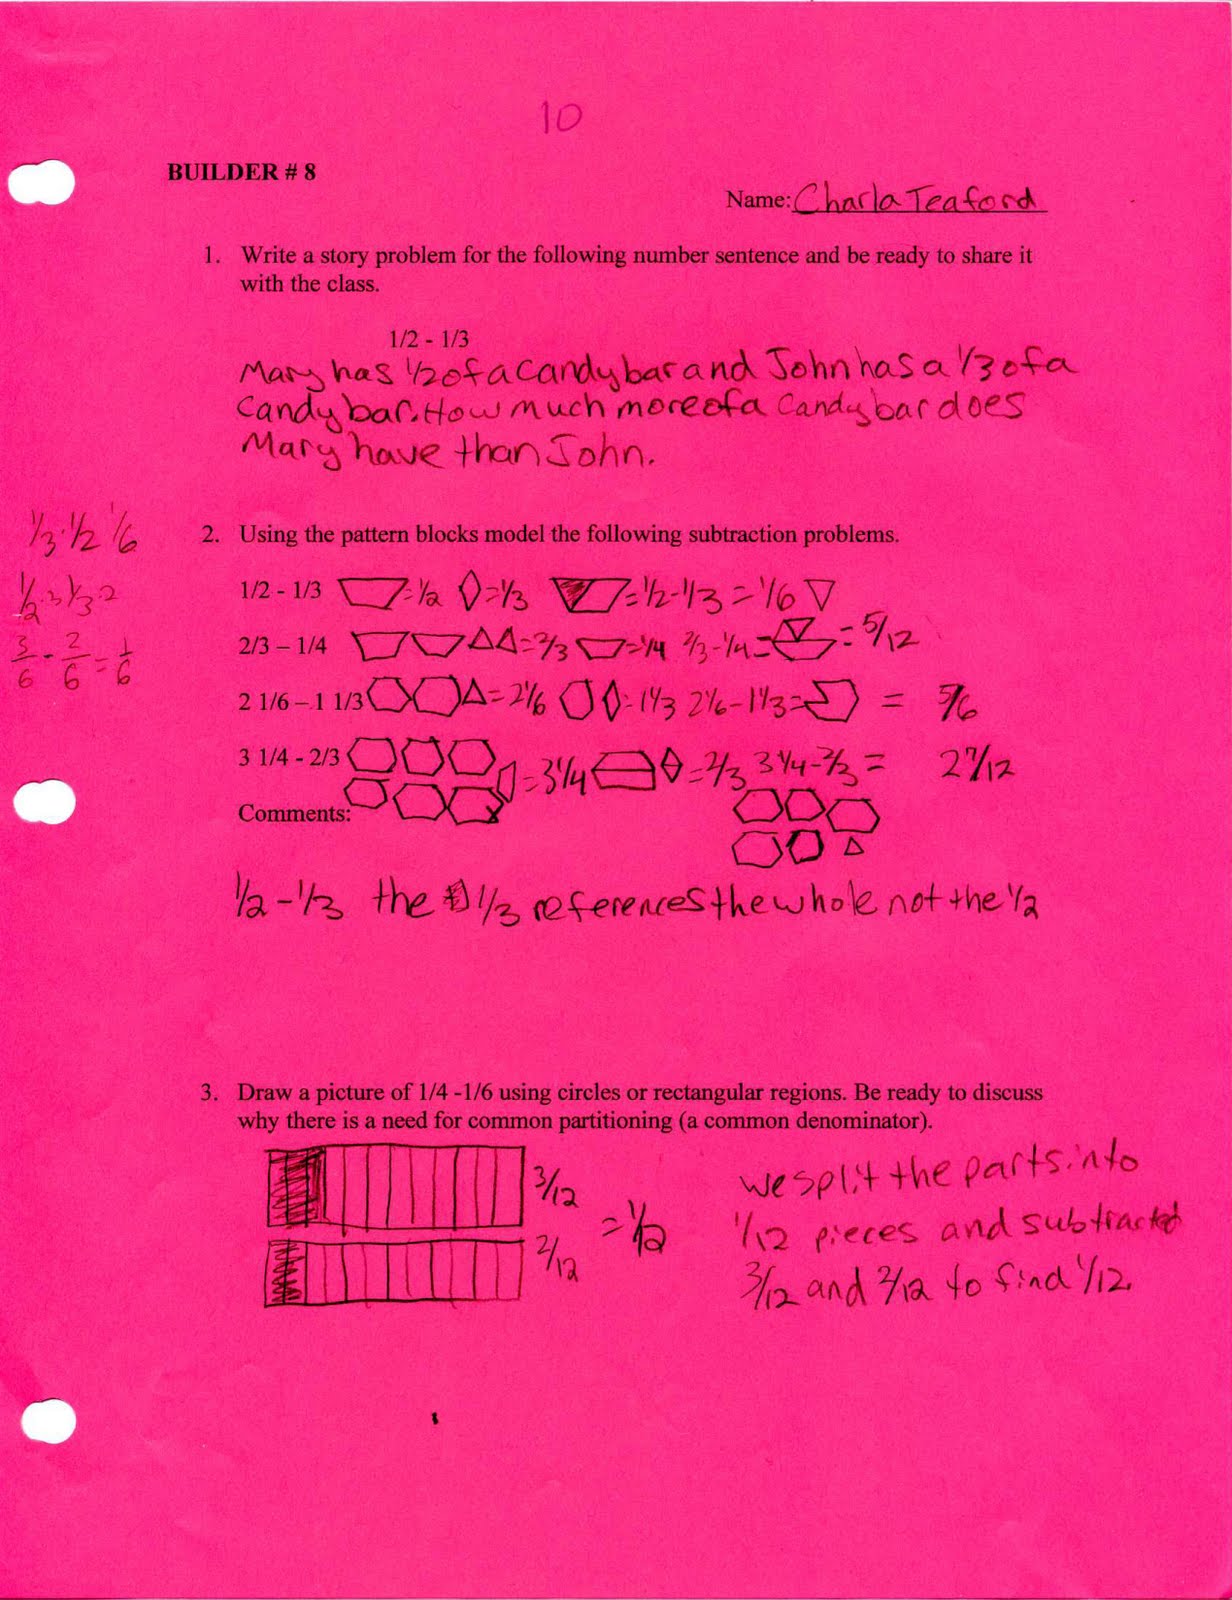 10
BUILDER # 8
Name: Charla Teaford
1. Write a story problem for the following number sentence and be ready to share it
with the class.
1/2 - 1/3
Mary has 1/2 of a candy bar and John has a 1/3 of a
candy bar. How much more of a candy bar does
Mary have than John.
1/3 · 1/2 1/6
1/2 ·3 1/3 ·2
3/6 - 2/6 = 1/6
2. Using the pattern blocks model the following subtraction problems.
1/2 - 1/3 = 1/2 = 1/3 = 1/2 - 1/3 = 1/6
2/3 – 1/4 = 2/3 = 1/4 2/3 - 1/4 = = 5/12
2 1/6 – 1 1/3 = 2 1/6 = 1 1/3 2 1/6 - 1 1/3 = = 5/6
3 1/4 - 2/3 = 3 1/4 = 2/3 3 1/4 - 2/3 = 2 7/12
Comments:
1/2 - 1/3 the 1/3 references the whole not the 1/2
3. Draw a picture of 1/4 -1/6 using circles or rectangular regions. Be ready to discuss
why there is a need for common partitioning (a common denominator).
3/12
2/12
= 1/12
we split the parts into
1/12 pieces and subtracted
3/12 and 2/12 to find 1/12.